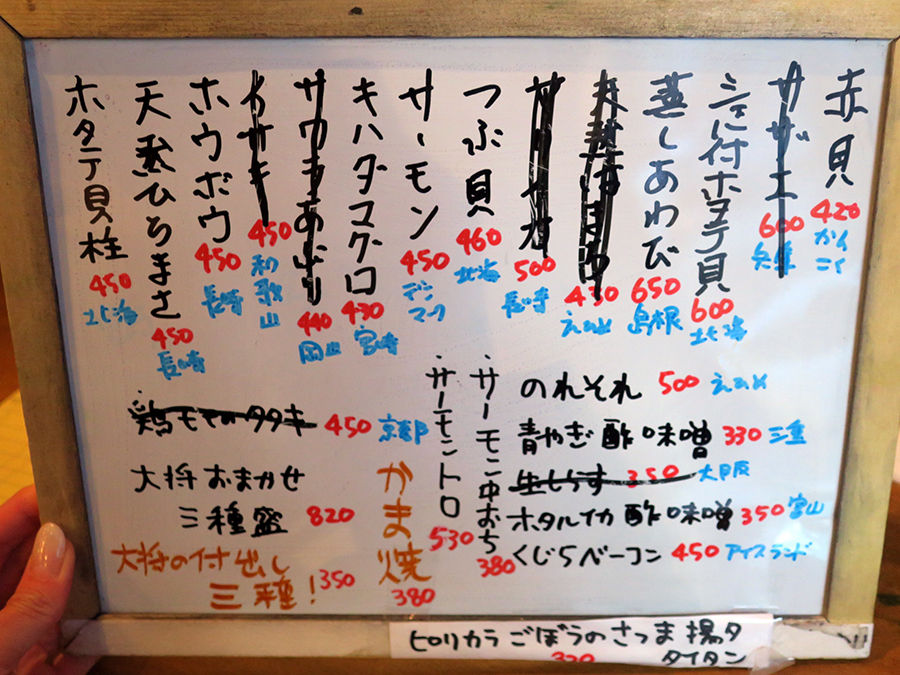 赤貝
420
かんこく
サザエ
600
兵庫
付ホタテ貝
600
北海
蒸しあわび
650
島根
430
えひめ
500
長崎
つぶ貝
460
北海
サーモン
450
デンマーク
キハダマグロ
430
宮崎
サワラあぶり
440
岡山
イサキ
450
和歌山
ホウボウ
450
長崎
天然ひらまさ
450
長崎
ホタテ貝柱
450
北海
のれそれ 500 えひめ
青やぎ酢味噌 330 三重
生しらす 350 大阪
ホタルイカ酢味噌 350 富山
くじらベーコン 450 アイスランド
・サーモン中おち
380
・サーモントロ
530
鶏モモのタタキ 450 京都
大将おまかせ
三種盛 820
大将の付出し
三種！ 350
かま焼
380
ピリカラごぼうのさつま揚タ
タイタン
330